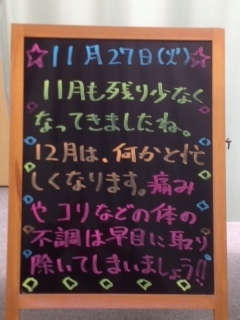 ☆11月27日(火)☆
11月も残り少なく
なってきましたね。
12月は、何かと忙
しくなります。痛み
やコリなどの体の
不調は早目に取り
除いてしまいましょう!!